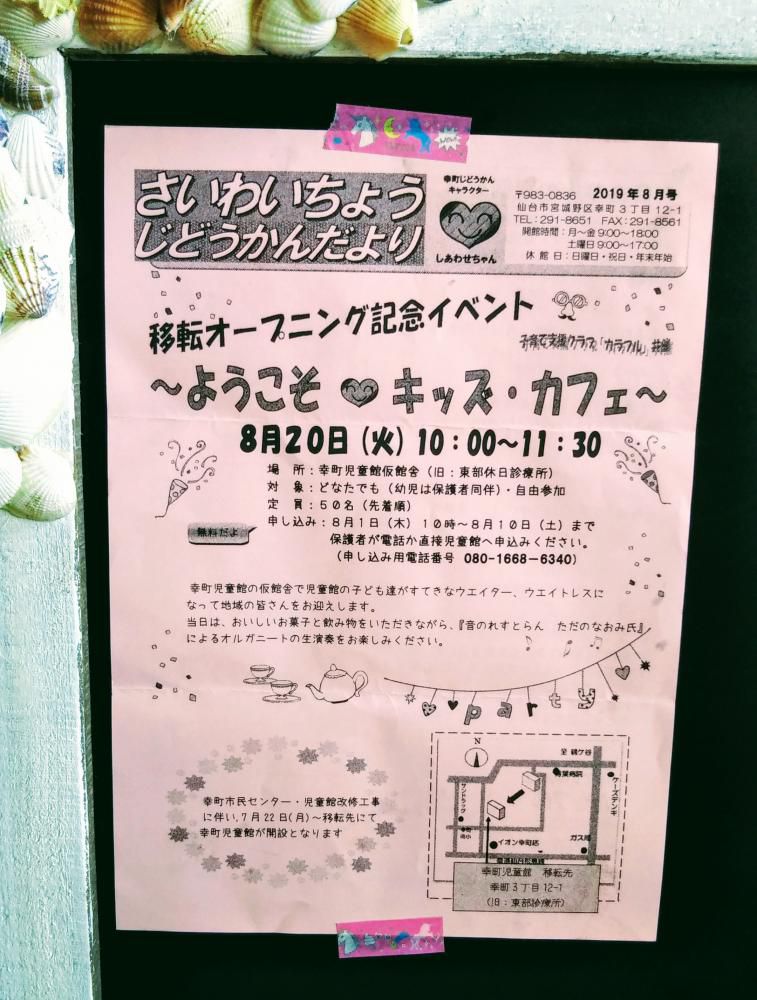 さいわいちょう
じどうかんだより
幸町じどうかん
キャラクター
しあわせちゃん
〒983-0836 2019年8月号
仙台市宮城野区幸町3丁目12-1
TEL:291-8651 FAX:291-8561
開館時間:月～金9:00～18:00
土曜日9:00～17:00
休館日:日曜日・祝日・年末年始
移転オープニング記念イベント
子育て支援クラブ「カラフル」共催
～ようこそ キッズ・カフェ～
8月20日(火)10:00～11:30
場 所:幸町児童館仮館舎(旧:東部休日診療所)
対 象:どなたでも(幼児は保護者同伴)・自由参加
定 員:50名(先着順)
申し込み:8月1日(木)10時～8月10日(土)まで
保護者が電話か直接児童館へ申込みください。
(申し込み用電話番号 080-1668-6340)
無料だよ
幸町児童館の仮館舎で児童館の子ども達がすてきなウエイター、ウエイトレスに
なって地域の皆さんをお迎えします。
当日は、おいしいお菓子と飲み物をいただきながら、『音のれすとらん ただのなおみ氏』
によるオルガニートの生演奏をお楽しみください。
party
幸町市民センター・児童館改修工事
に伴い,7月22日(月)～移転先にて
幸町児童館が開設となります
N
至 鶴ケ谷
サンドラッグ
ケーズデンキ
イオン幸町店
ガス局
幸町児童館 移転先
幸町3丁目12-1
(旧:東部診療所)